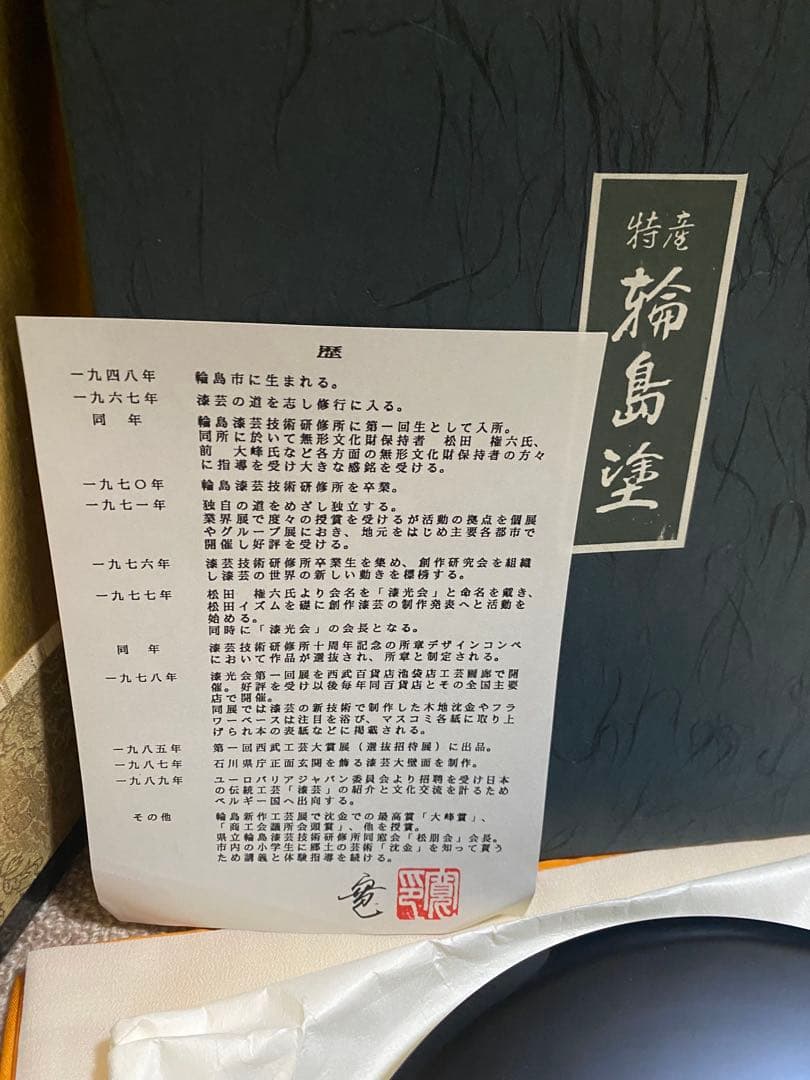 特産
輪島塗
歴
一九四八年 輪島市に生まれる。
一九六七年 漆芸の道を志し修行に入る。
同 年 輪島漆芸技術研修所に第一回生として入所。
同所に於いて無形文化財保持者 松田 権六氏、
前 大峰氏など各方面の無形文化財保持者の方々
に指導を受け大きな感銘を受ける。
一九七〇年 輪島漆芸技術研修所を卒業。
一九七一年 独自の道をめざし独立する。
業界展で度々の授賞を受けるが活動の拠点を個展
やグループ展におき、地元をはじめ主要各都市で
開催し好評を受ける。
一九七六年 漆芸技術研修所卒業生を集め、創作研究会を組織
し漆芸の世界の新しい動きを標榜する。
一九七七年 松田 権六氏より会名を「漆光会」と命名を戴き、
松田イズムを礎に創作漆芸の制作発表へと活動を
始める。
同時に「漆光会」の会長となる。
同 年 漆芸技術研修所十周年記念の所章デザインコンペ
において作品が選抜され、所章と制定される。
一九七八年 漆光会第一回展を西武百貨店池袋店工芸画廊で開
催。好評を受け以後毎年同百貨店とその全国主要
店で開催。
同展では漆芸の新技術で制作した木地沈金やフラ
ワーベースは注目を浴び、マスコミ各紙に取り上
げられ本の表紙などに掲載される。
一九八五年 第一回西武工芸大賞展（選抜招待展）に出品。
一九八七年 石川県庁正面玄関を飾る漆芸大壁面を制作。
一九八九年 ユーロパリアジャパン委員会より招聘を受け日本
の伝統工芸「漆芸」の紹介と文化交流を計るため
ベルギー国へ出向する。
その他 輪島新作工芸展で沈金での最高賞「大峰賞」、
「商工会議所会頭賞」、他を授賞。
県立輪島漆芸技術研修所同窓会「松朋会」会長。
市内の小学生に郷土の芸術「沈金」を知って貰う
ため講義と体験指導を続ける。